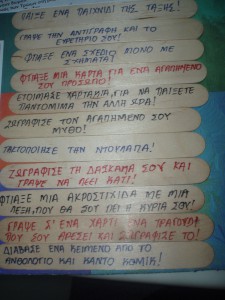 ΠΑΙΞΕ ΕΝΑ ΠΑΙΧΝΙΔΙ ΤΗΣ ΤΑΞΗΣ!
ΓΡΑΨΕ ΤΗΝ ΑΝΤΙΓΡΑΦΗ ΚΑΙ ΤΟ
ΕΥΡΕΤΗΡΙΟ ΣΟΥ!
ΦΤΙΑΞΕ ΕΝΑ ΣΧΕΔΙΟ ΜΟΝΟ ΜΕ
ΣΧΗΜΑΤΑ!
ΦΤΙΑΞΕ ΜΙΑ ΚΑΡΤΑ ΓΙΑ ΕΝΑ ΑΓΑΠΗΜΕΝΟ
ΣΟΥ ΠΡΟΣΩΠΟ!
ΕΤΟΙΜΑΣΕ ΧΑΡΤΑΚΙΑ ΓΙΑ ΝΑ ΠΑΙΞΕΤΕ
ΠΑΝΤΟΜΙΜΑ ΤΗΝ ΑΛΛΗ ΩΡΑ!
ΖΩΓΡΑΦΙΣΕ ΤΟΝ ΑΓΑΠΗΜΕΝΟ ΣΟΥ
ΜΥΘΟ!
ΤΑΚΤΟΠΟΙΗΣΕ ΤΗΝ ΝΤΟΥΛΑΠΑ!
ΖΩΓΡΑΦΙΣΕ ΤΗ ΔΑΣΚΑΛΑ ΣΟΥ ΚΑΙ
ΓΡΑΨΕ ΝΑ ΛΕΕΙ ΚΑΤΙ!
ΦΤΙΑΞΕ ΜΙΑ ΑΚΡΟΣΤΙΧΙΔΑ ΜΕ ΜΙΑ
ΛΕΞΗ ΠΟΥ ΘΑ ΣΟΥ ΠΕΙ Η ΚΥΡΙΑ ΣΟΥ!
ΓΡΑΨΕ Σ' ΕΝΑ ΧΑΡΤΙ ΕΝΑ ΤΡΑΓΟΥΔΙ
ΠΟΥ ΣΟΥ ΑΡΕΣΕΙ ΚΑΙ ΖΩΓΡΑΦΙΣΕ ΤΟ!
ΔΙΑΒΑΣΕ ΕΝΑ ΚΕΙΜΕΝΟ ΑΠΟ ΤΟ
ΑΝΘΟΛΟΓΙΟ ΚΑΙ ΚΑΝΤΟ ΚΟΜΙΚ!